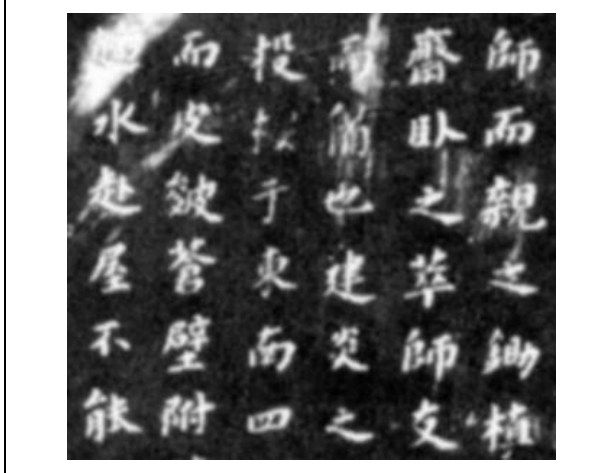 師而親之鋤植
齋臥之萃師友
而也建炎之
投于東南四
而皮皴蒼壁附
水赴屋不能